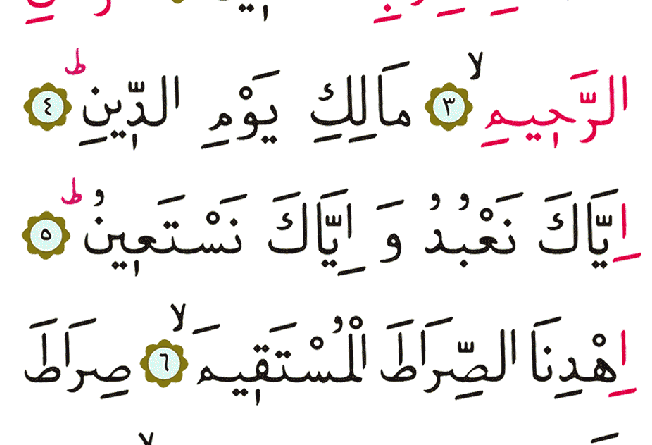 الرَّح۪يمِۙ ﴿٣﴾ مَالِكِ يَوْمِ الدّ۪ينِۜ ﴿٤﴾
اِيَّاكَ نَعْبُدُ وَ اِيَّاكَ نَسْتَع۪ينُۜ ﴿٥﴾
اِهْدِنَا الصِّرَاطَ الْمُسْتَق۪يمَۙ ﴿٦﴾ صِرَاطَ